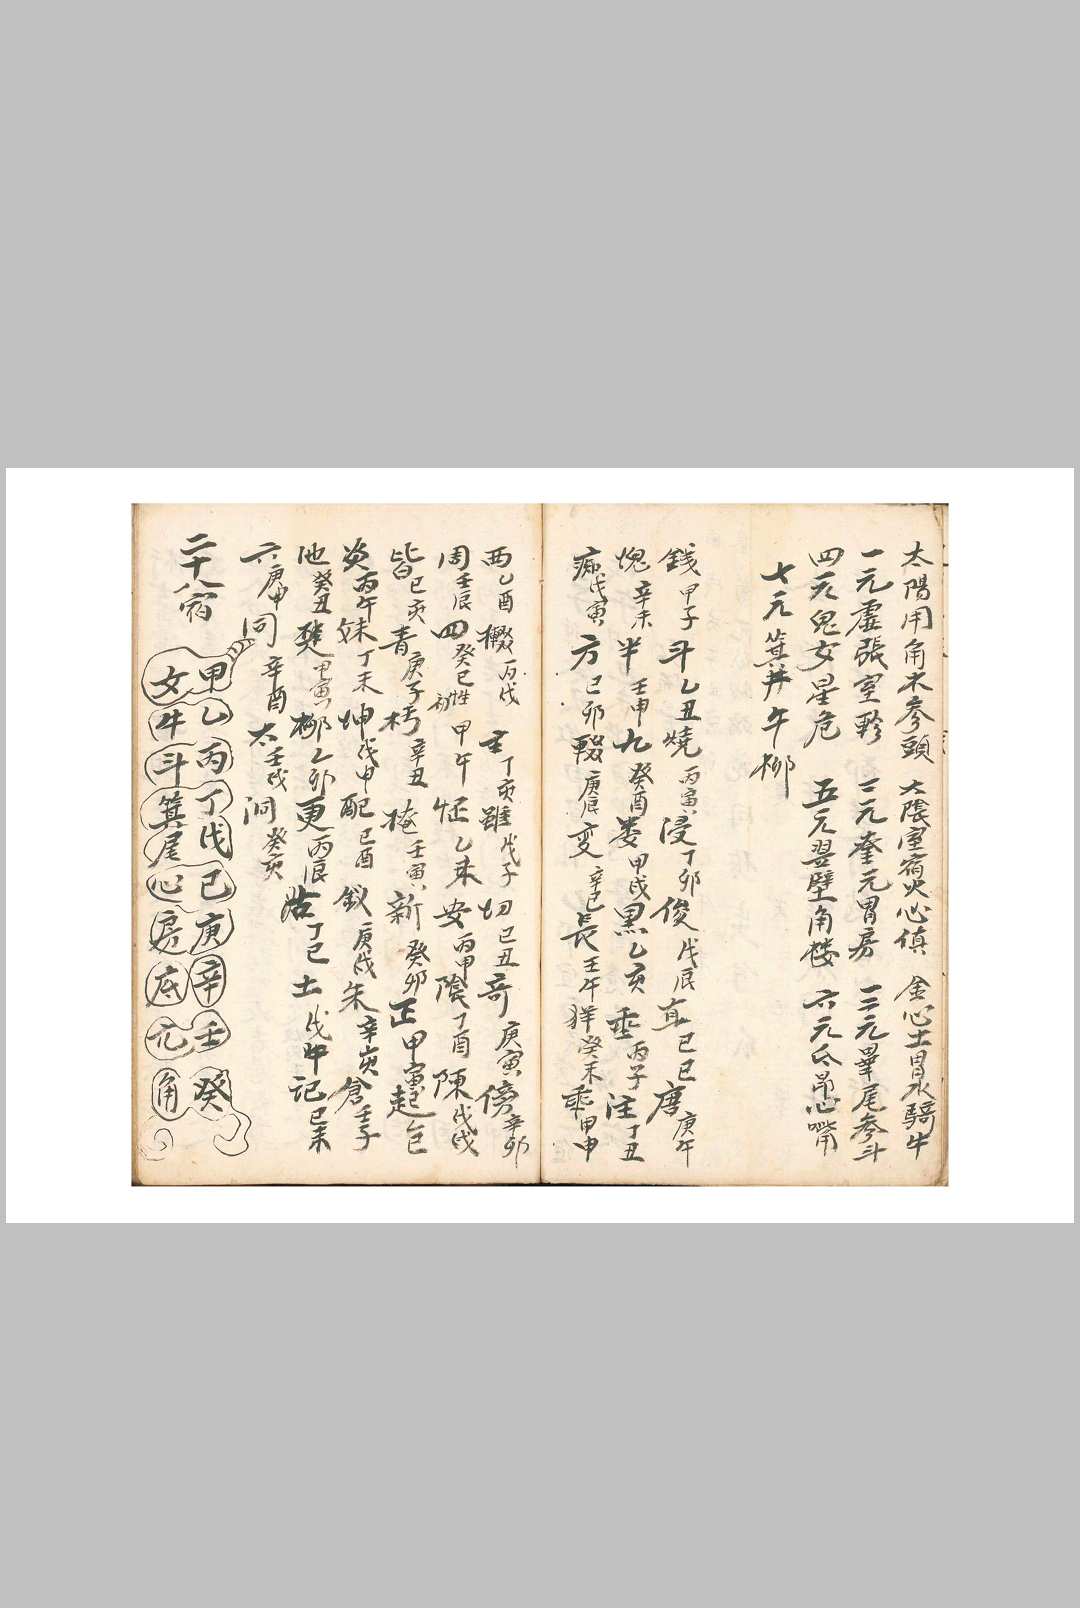 太陽用角木參頭 太陰室宿火心慎 金心土胃水騎牛
一元虛張室軫 二元奎元胃房 三元畢尾參斗
四元鬼女星危 五元翌壁角楼 六元氐昴心嘴
七元箕井午柳
錢甲子 斗乙丑 燒丙寅 浸丁卯 俊戊辰 直己巳 唐庚午
愧辛未 半壬申 九癸酉 娄甲戌 黑乙亥 垂丙子 注丁丑
痴戊寅 方己卯 輟庚辰 変辛巳 長壬午 羊癸未 乖甲申
西乙酉 棷丙戌 玄丁亥 雖戊子 切己丑 奇庚寅 傍辛卯
周壬辰 四癸巳 性初甲午 怔乙未 安丙申 陰丁酉 陳戊戌
皆己亥 青庚子 朽辛丑 掩壬寅 新癸卯 正甲寅 起乙巳
炎丙午 妹丁未 坤戊申 配己酉 釵庚戌 朱辛亥 倉壬子
池癸丑 楚甲寅 柳乙卯 更丙辰 沽丁巳 土戊午 記己未
六庚申 同辛酉 太壬戌 洞癸亥
二十八宿
甲乙丙丁戊己庚辛壬癸
女牛斗箕尾心房底亢角